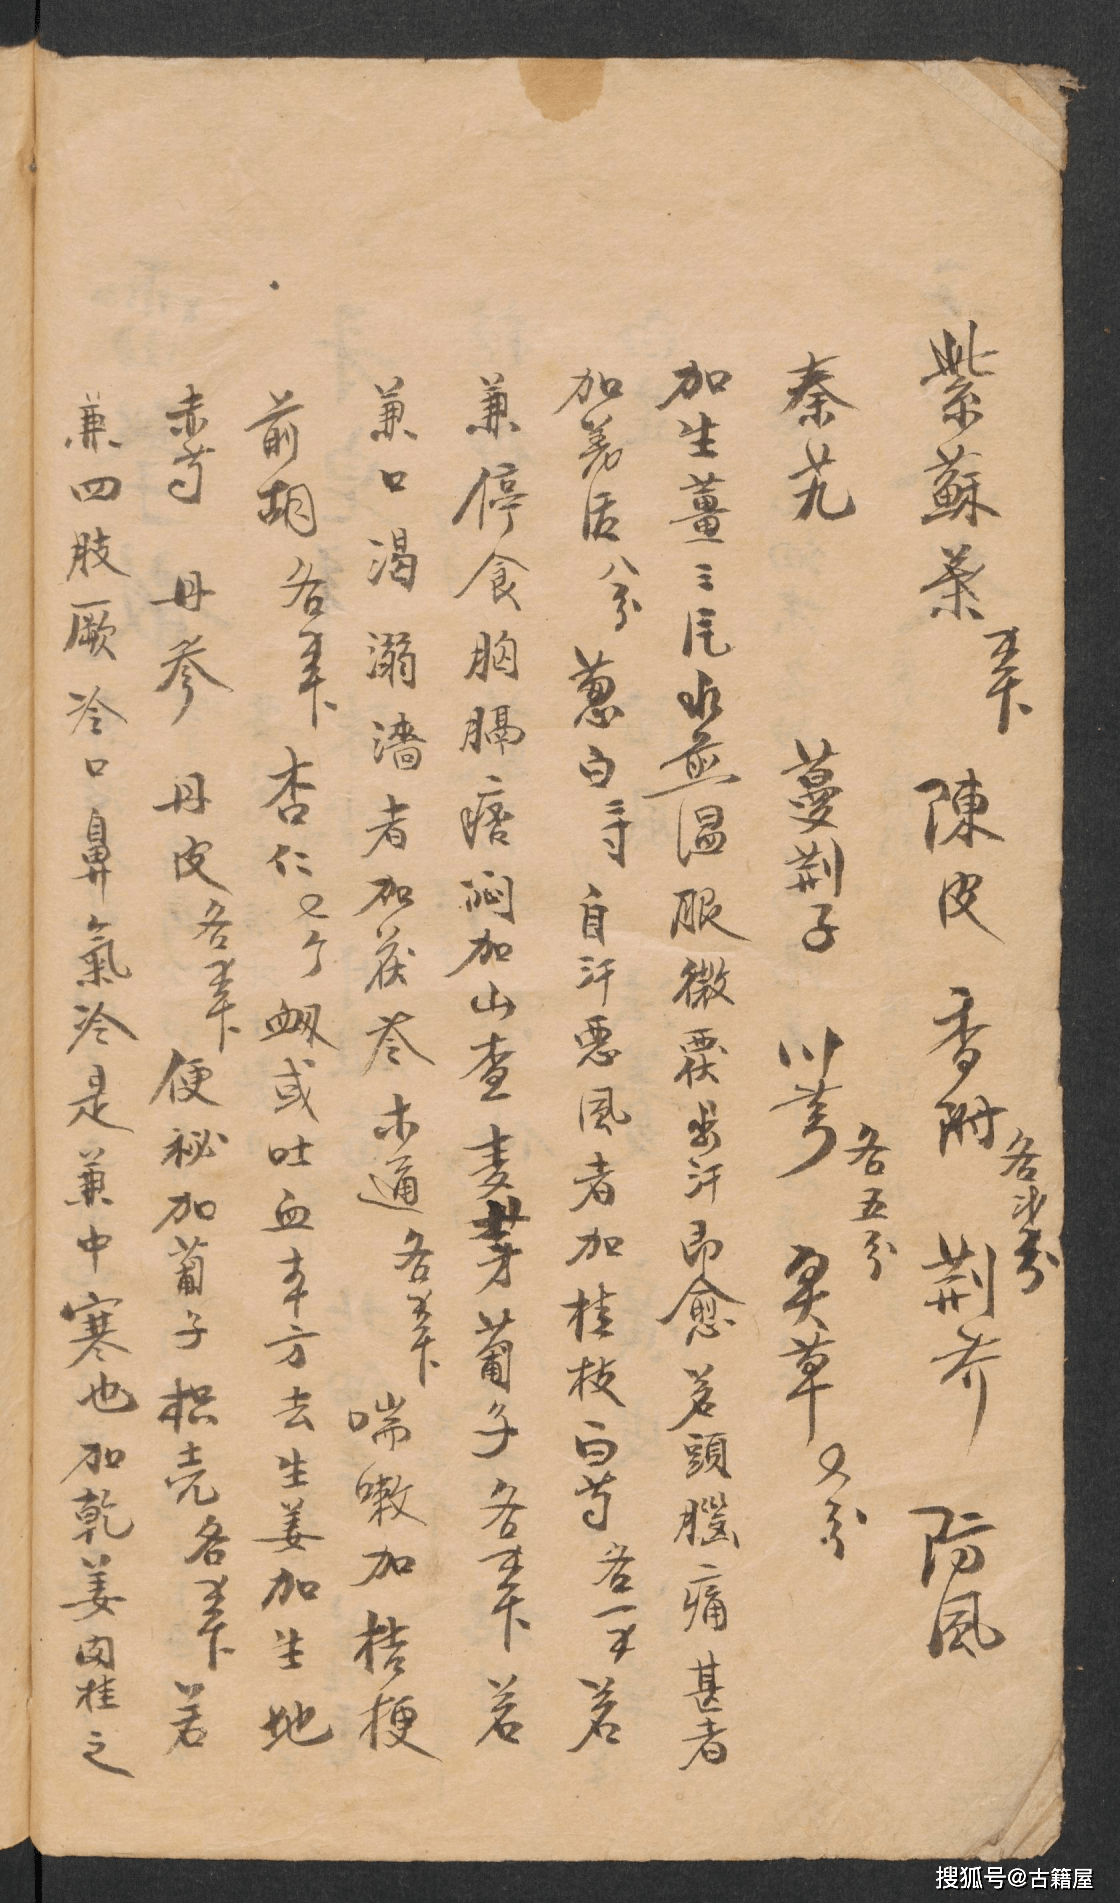 紫蘇葉 陳皮 香附 各 荆芥 防風
秦艽 蔓荆子 川芎 各五分 草 分
加生薑三片水煎温服微覆出汗即愈若頭腦痛甚者
加羌活八分葱白三寸自汗惡風者加桂枝白芍各一 若
兼停食胸膈痞悶加山查麦芽蔔子各 若
兼口渴溺濇者加茯苓木通各 喘嗽加桔梗
前胡各 杏仁 衂或吐血本方去生姜加生地
赤芍 丹參 丹皮各 便祕加蔔子枳壳各 若
兼四肢厥冷口鼻氣冷是兼中寒也加乾姜肉桂之
搜狐号@古籍屋